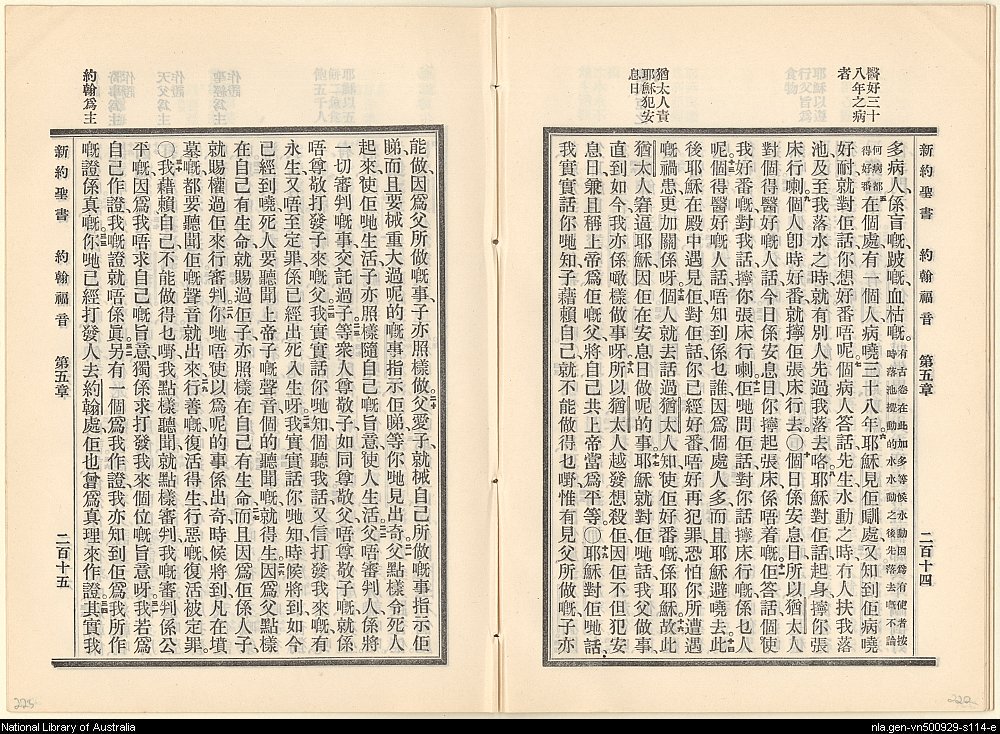 醫好三十
八年之病
者
猶太人責
耶穌犯安
息日
新約聖書 約翰福音 第五章 二百十四
多病人係盲嘅跛嘅血枯嘅有古卷在此加多等候水動因爲有使者按時落池攪動的水水動之後先落去嘅不論
何病都得好番在個處有一個人病嘵三十八年耶穌見佢瞓處又知到佢病嘵
好耐就對佢話你想好番唔呢個病人答話先生水動之時有人扶我落
池及至我落水之時就有別人先過我落去咯耶穌對佢話起身擰你張
床行喇個人卽時好番就擰佢張床行去個日係安息日所以猶太人
對個得醫好嘅人話今日係安息日你擰起張床係唔着嘅佢答話個使
我好番嘅對我話擰你張床行喇佢哋問佢話對你話擰床行嘅係乜人
呢個得醫好嘅人話唔知到係乜誰因爲個處人多而且耶穌避嘵去此
後耶穌在殿中遇見佢對佢話你已經好番唔好再犯罪恐怕你所遭遇
嘅禍患更加關係呀個人就去話過猶太人知使佢好番嘅係耶穌故此
猶太人窘逼耶穌因佢在安息日做呢的事耶穌就對佢哋話我父做事
直到如今我亦係噉樣做事呀所以猶太人越發想殺佢因佢不但犯安
息日兼且稱上帝爲佢嘅父將自己共上帝當爲平等耶穌對佢哋話
我實實話你哋知子藉賴自己就不能做得乜嘢惟有見父所做嘅子亦
能做因爲父所做嘅事子亦照樣做父愛子就械自己所做嘅事指示佢
睇而且要械重大過呢的嘅事指示佢睇等你哋見出奇父點樣令死人
起來使佢哋生活子亦照樣隨自己嘅旨意使人生活父唔審判人係將
一切審判嘅事交託過子等衆人尊敬子如同尊敬父唔尊敬子嘅就係
唔尊敬打發子來嘅父我實實話你哋知個聽我話又信打發我來嘅有
永生又唔至定罪係已經出死入生呀我實實話你哋知時候將到如今
已經到嘵死人要聽聞上帝子嘅聲音個的聽聞嘅就得生因爲父點樣
在自己有生命就賜過佢子亦照樣在自己有生命而且因爲佢係人子
就賜權過佢來行審判你哋唔使以爲呢的事係出奇時候將到凡在墳
墓嘅都要聽聞佢嘅聲音就出來行善嘅復活得生行惡嘅復活被定罪
我藉賴自己不能做得乜嘢我點樣聽聞就點樣審判我嘅審判係公
平嘅因爲我唔求自己嘅旨意獨係求打發我來個位嘅旨意呀我若爲
自己作證我嘅證就唔係眞另有一個爲我作證我亦知到佢爲我所作
嘅證係真嘅你哋已經打發人去約翰處佢也曾爲真理來作證其實我
新約聖書 約翰福音 第五章 二百十五
約翰爲主
225
222
National Library of Australia
nla.gen-vn500929-s114-e